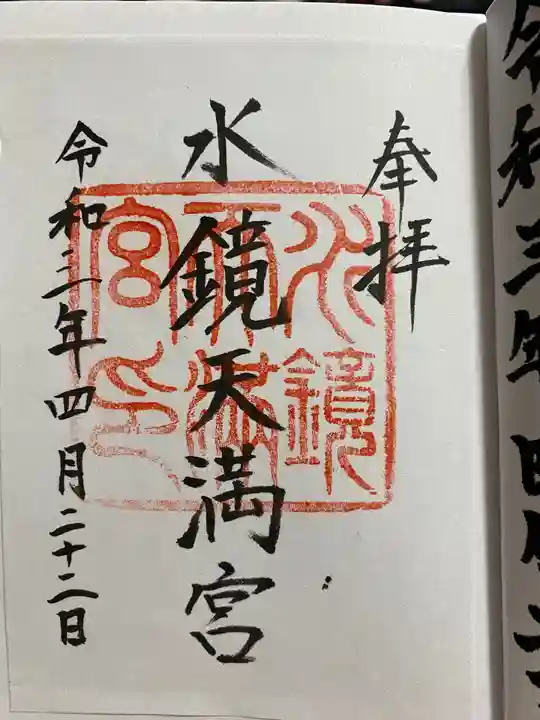 奉拝
水鏡天満宮
水鏡
天満
宮印
令和三年四月二十二日
令和三年四月二